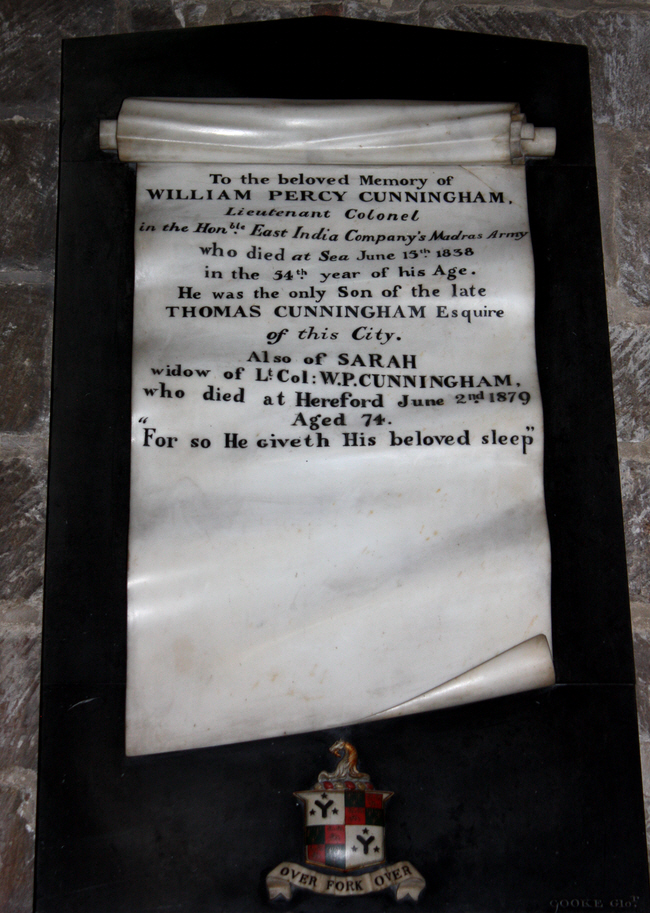 To the beloved Memory of
WILLIAM PERCY CUNNINGHAM,
Lieutenant Colonel
in the Honble East India Company's Madras Army
who died at Sea June 15th 1838
in the 54th year of his Age.
He was the only Son of the late
THOMAS CUNNINGHAM Esquire
of this City.
Also of SARAH
widow of Lt Col: W.P. CUNNINGHAM,
who died at Hereford June 2nd 1879
Aged 74.
"For so He giveth His beloved sleep"
OVER FORK OVER
COOKE Glo'r